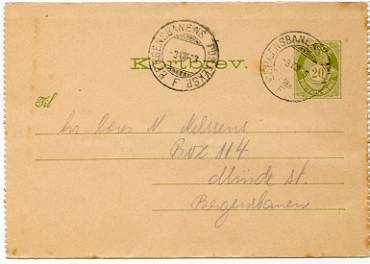 BERGENSBANENS POSTEKSP. F
BERGENSBANENS
Kortbrev.
20
Til
N Nilssens
Box 114
Minde st.
Bergensbanen